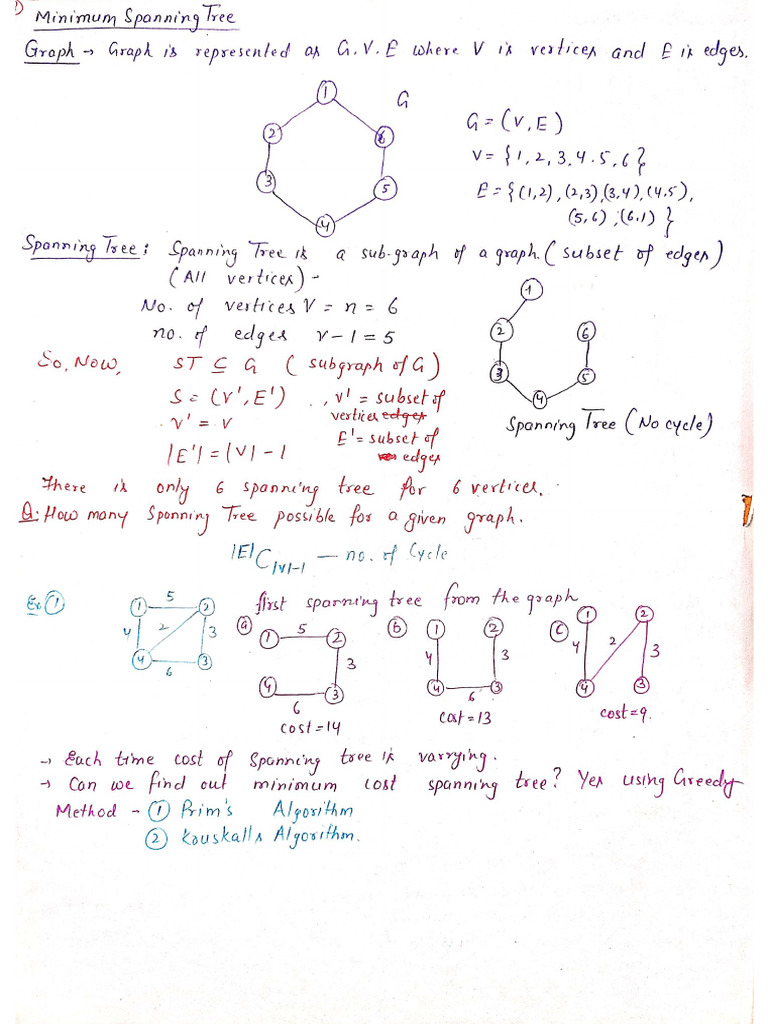 1)
Minimum Spanning Tree
Graph → Graph is represented as G.V.E where V is vertices and E is edges.
1
2
6
3
5
4
G
G = (V, E)
V = {1, 2, 3, 4.5, 6}
E = {(1,2), (2,3), (3,4), (4.5),
(5,6), (6.1)}
Spanning Tree: Spanning Tree is a sub-graph of a graph. (subset of edges)
(All vertices) -
No. of vertices V = n = 6
no. of edges v-1 = 5
1
2
6
3
5
4
Spanning Tree (No cycle)
So, Now, ST ⊆ G (subgraph of G)
S = (V', E') ., v' = subset of
vertices edges
v' = v
E' = subset of
edges
|E'| = |V| - 1
There is only 6 spanning tree for 6 vertices.
Q: How many Spanning Tree possible for a given graph.
|E|C|v|-1 — no. of Cycle
Ex ①
1 5 2
4 2 3
4 6 3
first spanning tree from the graph
ⓐ
1 5 2
3
4 6 3
cost = 14
ⓑ
1 2
4 3
4 6 3
cost = 13
ⓒ
1 2
4 2 3
4 3
cost = 9.
→ Each time cost of spanning tree is varrying.
→ Can we find out minimum cost spanning tree? Yes using Greedy
Method - ① Prim's Algorithm
② Kouskalls Algorithm.